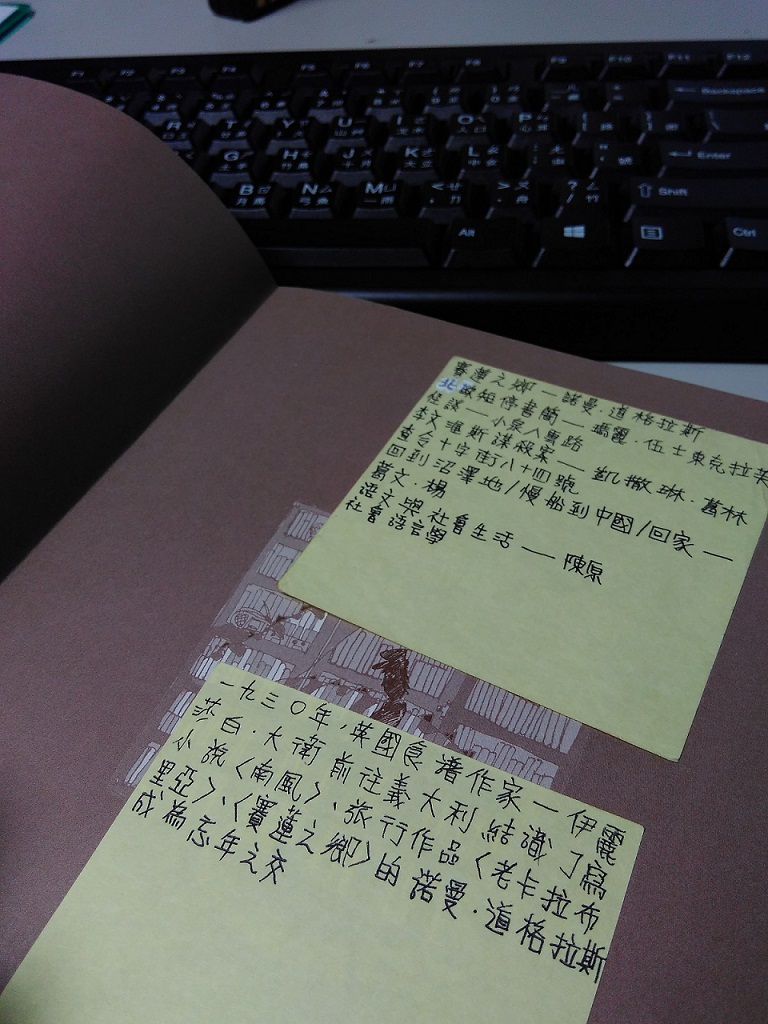 F1 F2 F3 F4 F5 F6 F7 F8 F9 F10 F11 F12
Backspace
R T Y U I O P
G H J K L
Enter
B N M
Shift
Alt
Ctrl
賽蓮之鄉—諾曼·道格拉斯
北歐短停書簡—瑪麗·伍士東克拉芙
怪談—小泉八雲
李文維斯謀殺案—凱撒琳·葛林
查令十字街八十四號
回到沼澤地/慢船到中國/回家—
葛文·楊
語文與社會生活—陳原
社會語言學
一九三〇年,英國食譜作家—伊麗
莎白·大衛前往義大利結識了寫
小說〈南風〉、旅行作品〈老卡拉布
里亞〉、〈賽蓮之鄉〉的諾曼·道格拉斯
成為忘年之交